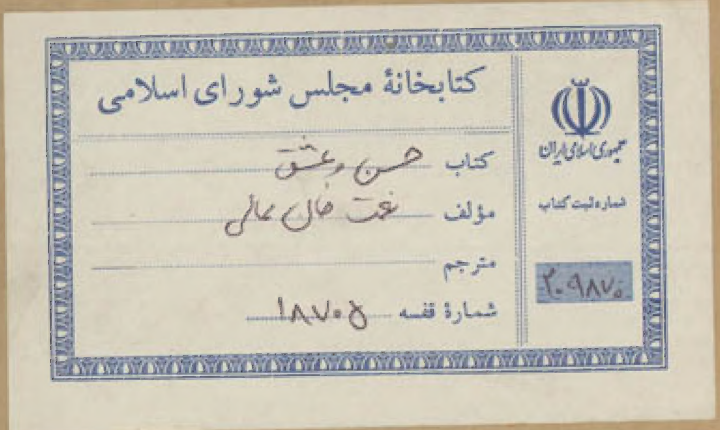 کتابخانهٔ مجلس شورای اسلامی
کتاب حسن و عشق
مؤلف نعمت خان عالی
مترجم
شمارهٔ قفسه ۱۸۷۰۵
جمهوری اسلامی ایران
شماره ثبت کتاب
۲۰۹۸۷۵